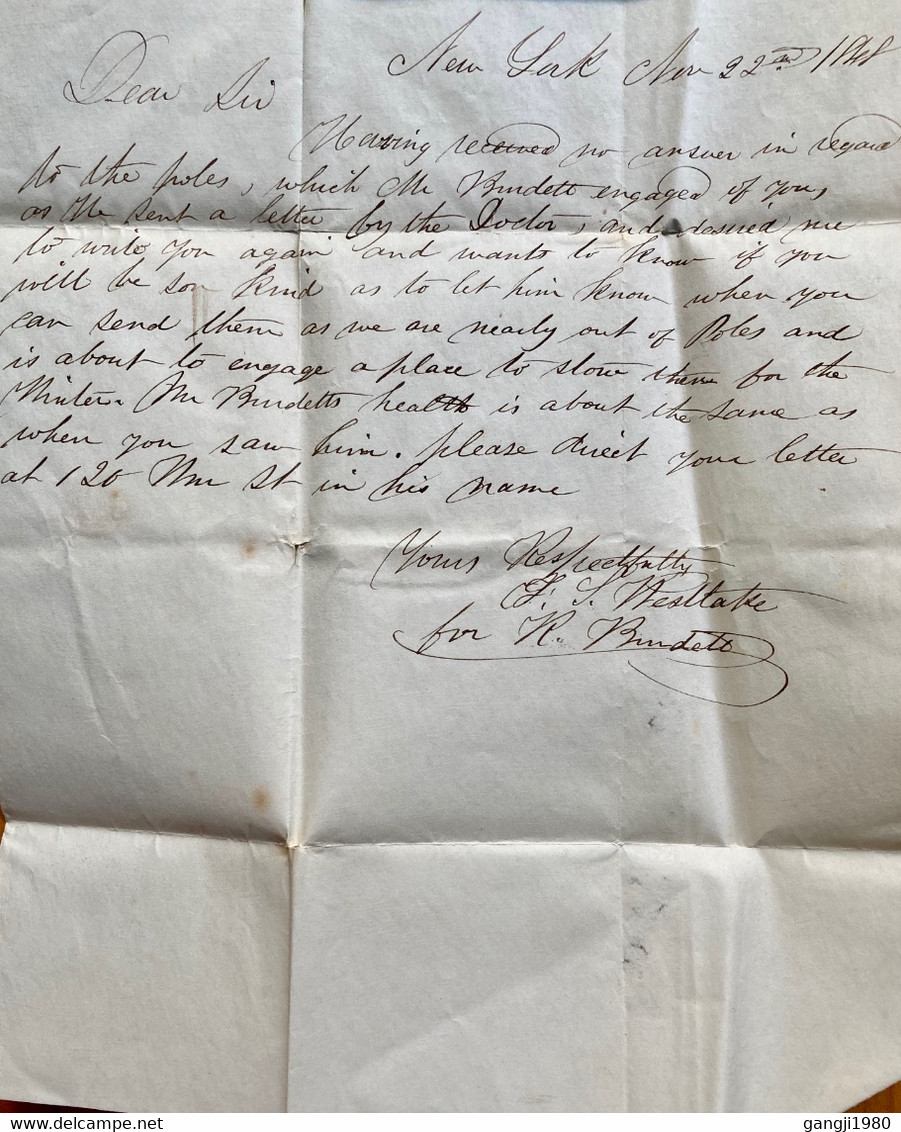 New York Nov 22nd 1848
Dear Sir
Having received no answer in regard
to the poles, which Mr Burdett engaged of you,
as He sent a letter by the Doctor, and desired me
to write you again and wants to know if you
will be so kind as to let him know when you
can send them as we are nearly out of Poles and
is about to engage a place to stow them for the
Winter. Mr Burdetts health is about the same as
when you saw him. please direct your letter
at 120 Wm St in his name
Yours Respectfully
S. Westlake
for R. Burdett
gangji1980